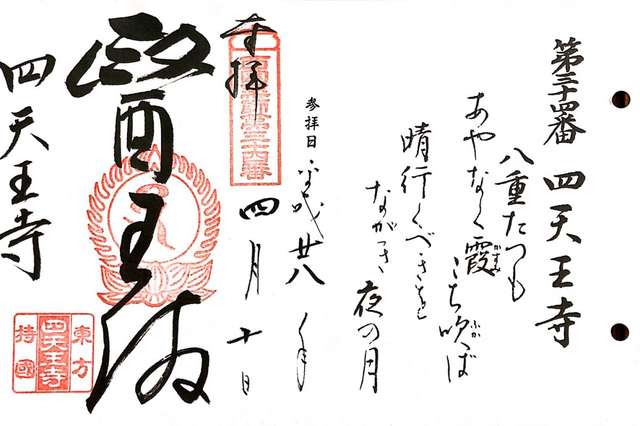 第三十四番 四天王寺
八重たつも
あやなく霞こち吹ば
かすみ
ふか
晴行くべきさと
ながつき夜の月
奉拝
参拝日 平成廿八年
四月十日
医王殿
四天王寺
東方
四天王寺
持國